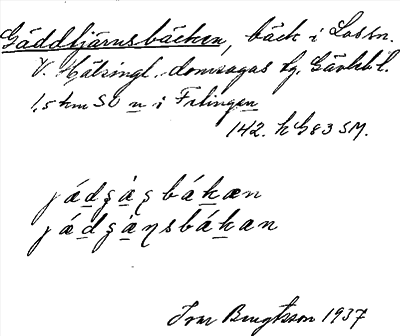 Gäddtjärnsbäcken, bäck i Los sn.
V. Hälsingl. domsagas tg, Gävleb. l.
1,5 km SO n i Fitingen
142. h G83 SM.
jádgàṣbákæn
jádgàṇsbákan
Ivar Bengtsson 1937